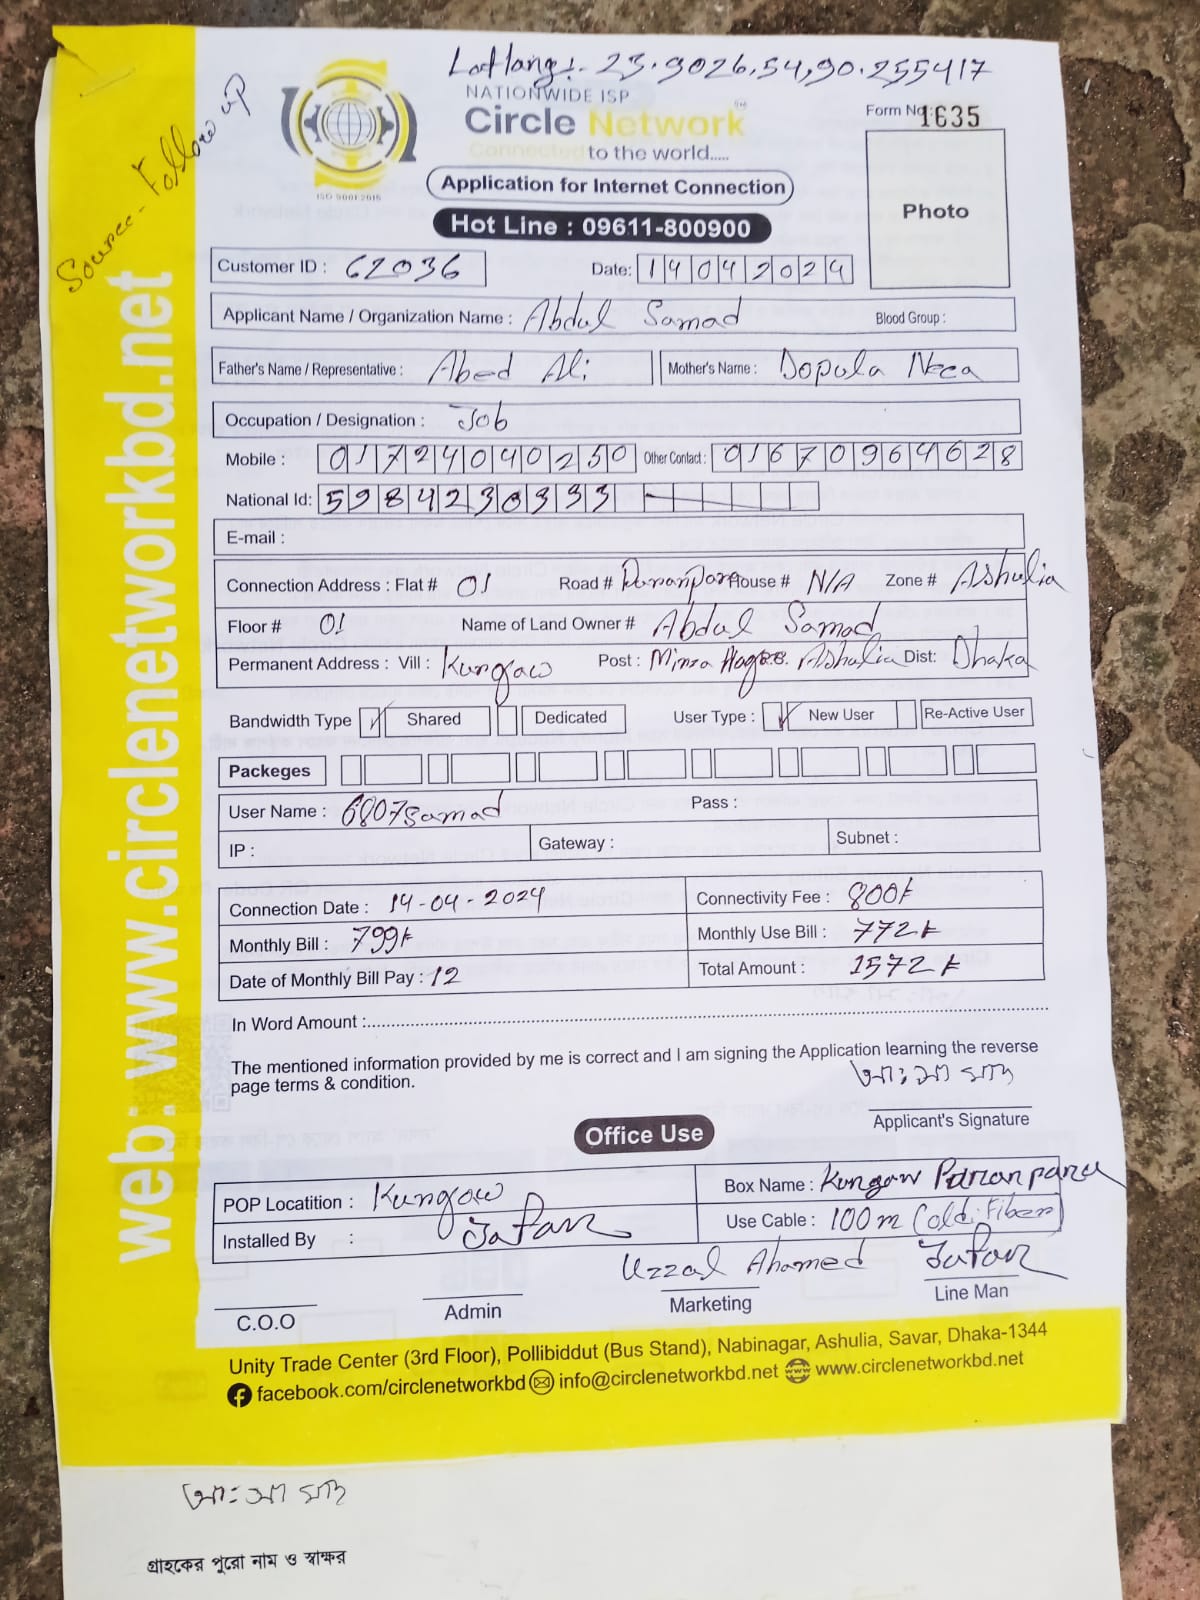 Lat Lang:- 23.9026,54,90.255417
Source- Follow up
NATIONWIDE ISP
Circle Network
Connected to the world.....
ISO 9001:2015
Form No: 1635
Application for Internet Connection
Photo
Hot Line : 09611-800900
Customer ID : 62036 Date: 14042024
Applicant Name / Organization Name : Abdul Samad Blood Group :
Father's Name / Representative : Abed Ali Mother's Name : Dopula Neca
Occupation / Designation : Job
Mobile : 01724040250 Other Contact : 01670964628
National Id: 5984230333
E-mail :
Connection Address : Flat # 01 Road # House # N/A Zone # Ashulia
Floor # 01 Name of Land Owner # Abdul Samad
Permanent Address : Vill : Kungaw Post : Mirza Ashulia Dist: Dhaka
Bandwidth Type Shared Dedicated User Type : New User Re-Active User
Packeges
User Name : 6807samad Pass :
IP : Gateway : Subnet :
Connection Date : 14-04-2024 Connectivity Fee : 800৳
Monthly Bill : 799৳ Monthly Use Bill : 772৳
Date of Monthly Bill Pay : 12 Total Amount : 1572৳
In Word Amount :
The mentioned information provided by me is correct and I am signing the Application learning the reverse
page terms & condition.
মোঃ সামাদ
Applicant's Signature
Office Use
POP Locatition : Kungaw Box Name : Kungaw Paranpara
Installed By : Jafar Use Cable : 100m (old Fiber)
Uzzal Ahamed Jafar
C.O.O Admin Marketing Line Man
web: www.circlenetworkbd.net
Unity Trade Center (3rd Floor), Pollibiddut (Bus Stand), Nabinagar, Ashulia, Savar, Dhaka-1344
facebook.com/circlenetworkbd info@circlenetworkbd.net www.circlenetworkbd.net
মোঃ সামাদ
গ্রাহকের পুরো নাম ও স্বাক্ষর